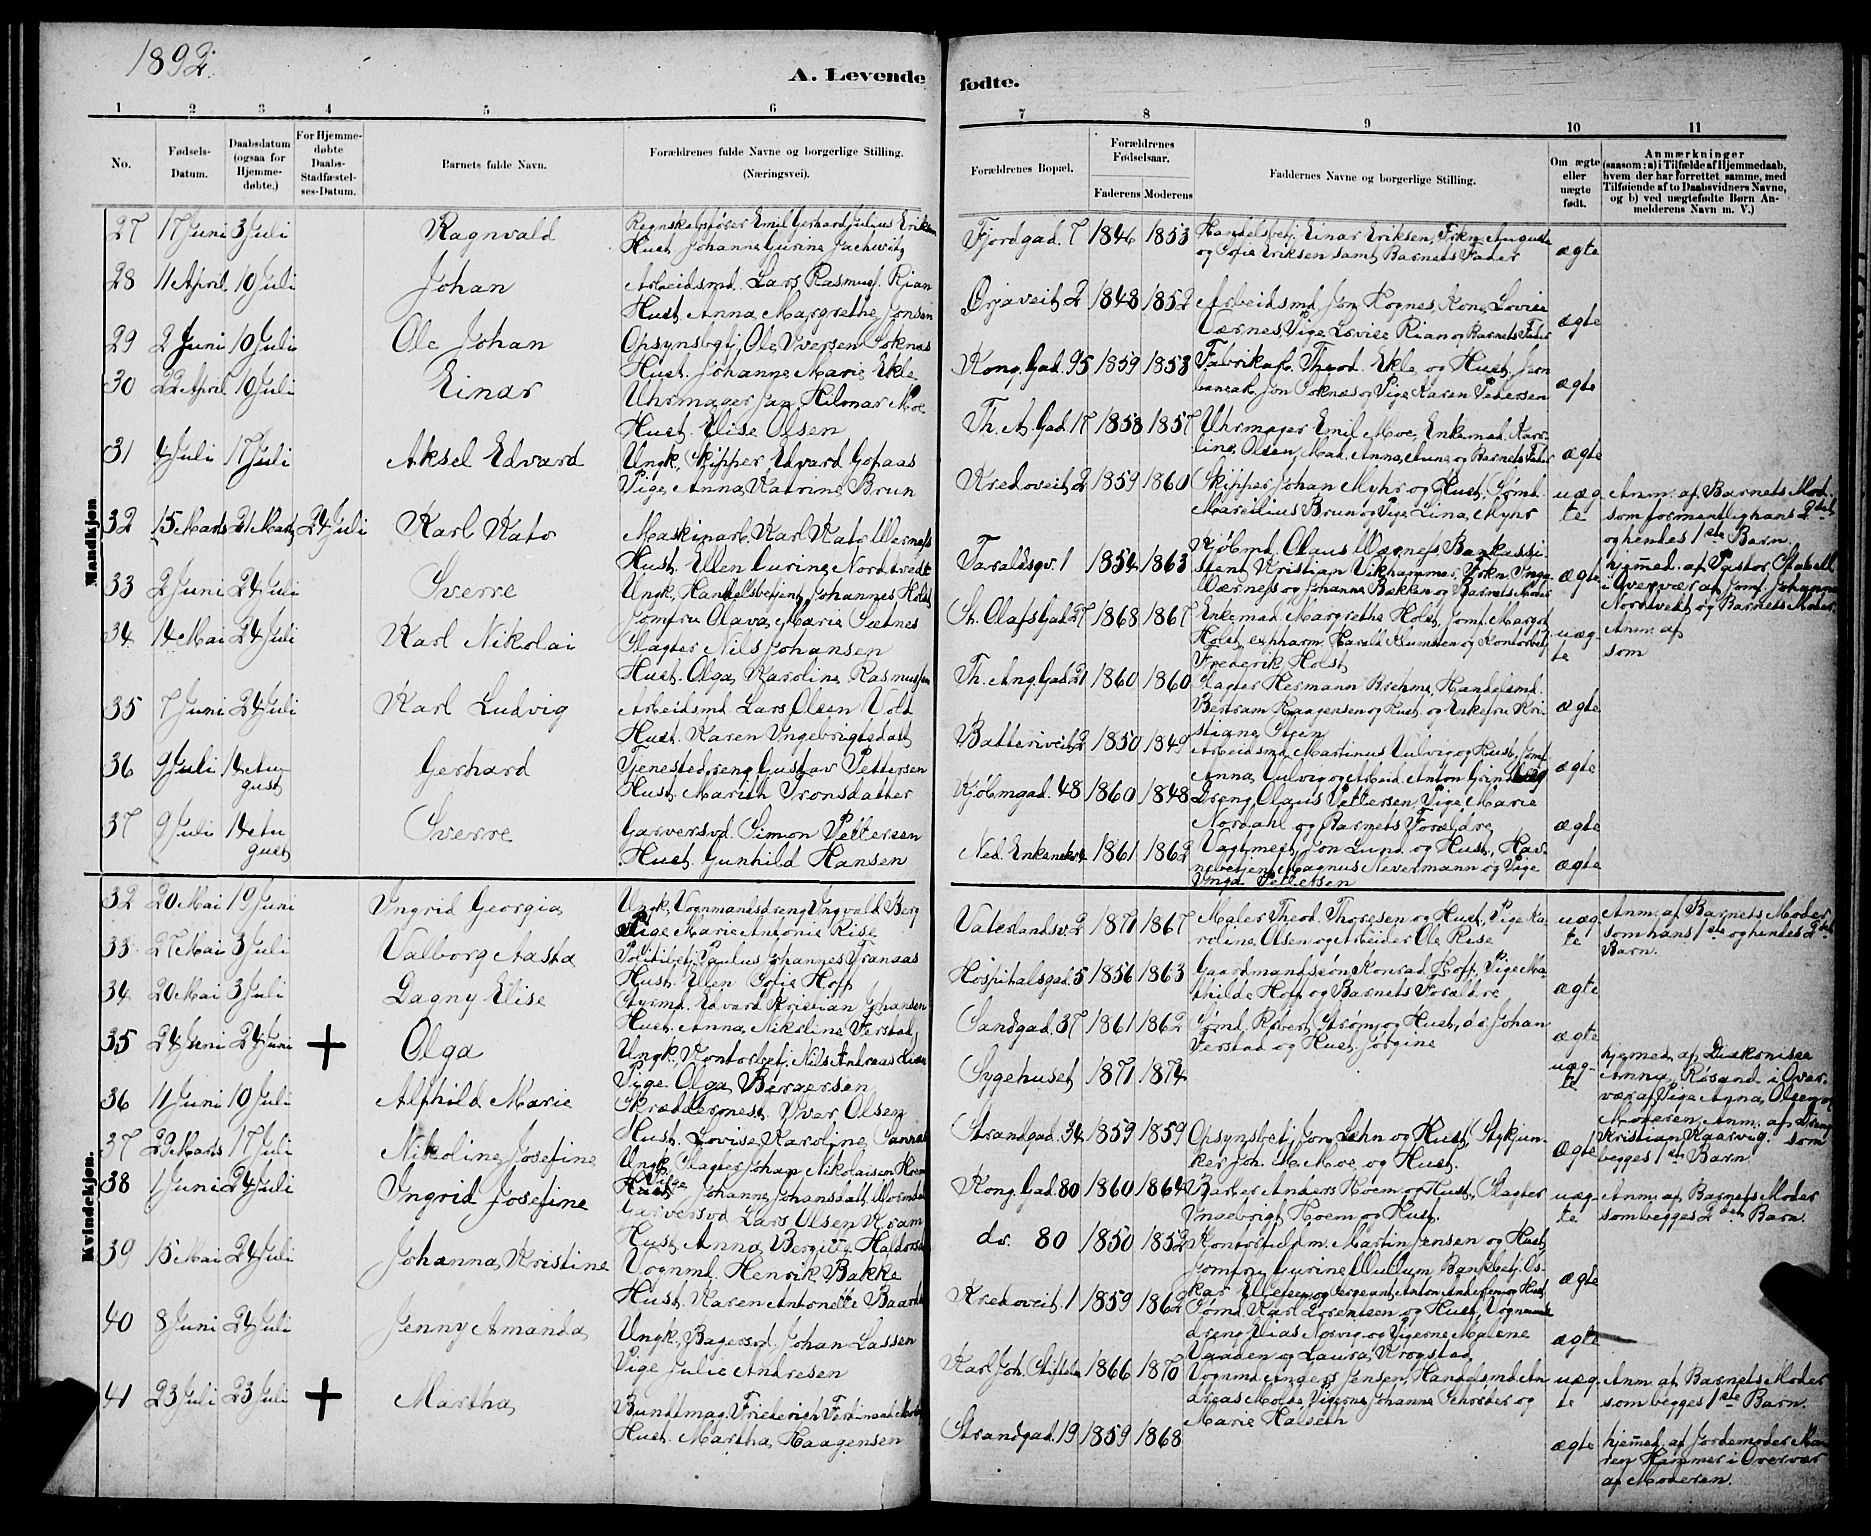 1892.
A. Levende
fødte.
1 2 3 4 5 6
7 8 9 10 11
No.
Fødsels-
Datum.
Daabsdatum
(ogsaa for
Hjemme-
døbte.)
For Hjemme-
døbte
Daabs-
Stadfæstel-
ses-Datum.
Barnets fulde Navn.
Forældrenes fulde Navne og borgerlige Stilling.
(Næringsvei).
Forældrenes Bopæl.
Forældrenes
Fødselsaar.
Faderens Moderens
Faddernes Navne og borgerlige Stilling.
Om ægte
eller
uægte
født.
Anmærkninger
(saasom: a) i Tilfælde af Hjemmedaab,
hvem der har forrettet samme, med
Tilføiende af to Daabsvidners Navne,
og b) ved uægtefødte Børn An-
melderens Navn m. V.)
Mandkjøn
27 17 Juni 3 Juli Ragnvald Regnskabsfører Emil Gerhard Julius Eriksen
Hust. Johanne Gurine
Fjordgad. 7 1846 1853 Handelsbetj. Einar Eriksen, Frkn. Auguste
og Sofie Eriksen samt Barnets Fader
ægte
28 11 April 10 Juli Johan Arbeidsmd. Lars Rasmus. Rian
Hust. Anna Margrethe Jonsen
Ørjaveit 2 1848 1852 Arbeidsmd. Jon Hognes, Kone Lovise
Pige Lovise Rian og Barnets Fader
ægte
29 2 Juni 10 Juli Ole Johan Opsynsbetj. Ole Iversen Soknæs
Hust. Johanna Marie Ekle
Kong. Gad. 95 1859 1853 Fabrikarb. Theod. Ekle og Hust. Jern-
banearb. Jon Soknæs og Pige Karen Pedersen
ægte
30 22 April 10 Juli Einar Uhrmager Jan Hilmar Moe
Hust. Elise Olsen
Th. A. Gad. 17 1858 1857 Uhrmager Emil Moe, Enkemad. Karo-
line Olsen, Mad. Anna Aune og Barnets Fader
ægte
31 4 Juli 17 Juli Aksel Edvard Ungk. Skipper Edvard Gofaas
Pige Anna Katrine Brun
Kredoveit 2 1859 1860 Skipper Johan Myhr og Hust. Sømd.
Marcilius Brun og Pige Lina Myhr
uæg-
te
Anm. af Barnets Mod.
som formentlig hans 2det
og hendes 1ste Barn.
32 15 Marts 21 Marts 24 Juli Karl Kato Maskinarb. Karl Kato Wærnes
Hust. Ellen Gurine Nordtvedt
Taraldsgv. 1 1854 1863 Kjøbmd. Olaus Wærnes, Bankassi-
stent Kristian Vikhammer, Frkn. Inga
Wærnes og Johanna Bækken og Barnets Moder
ægte
hjemmed. af Pastor Stabell
i Overvær af Jomf. Johanna
Nordtvedt og Barnets Moder.
33 2 Juni 24 Juli Sverre Ungk. Handelsbetjent Johannes Holst
Jomfru Olava Marie Sætnes
St. Olafsgad. 27 1868 1867 Enkemad. Margrethe Holst, Jomf. Margot
Holst, expharm. Harald Klumsten og Kontorbetj.
Frederik Holst
uæg-
te
Anm. af
som
34 14 Mai 24 Juli Karl Nikolai Slagter Nils Johansen
Hust. Olga Karoline Rasmussen
Th. Ang. Gad. 21 1860 1860 Slagter Hermann Brehme, Handelsmd.
Bertram Haagensen og Hust. og Enkefru Kri-
stiane Steen
ægte
35 7 Juni 24 Juli Karl Ludvig Arbeidsmd. Lars Olsen Vold
Hust. Karen Ingebrigtsdatt
Batteriveit 2 1850 1849 Arbeidsmd. Martinus Vulvig og Hust. Jomf.
Anna Vulvig og Arbeid. Anton
ægte
36 9 Juli 14 Au-
gust Gerhard Tjenestedreng Gustav Pettersen
Hust. Marith Tronsdatter
Kjøbmgad. 48 1860 1848 Dreng Olaus Pettersen, Pige Marie
Nordahl og Barnets Forældre
ægte
37 9 Juli 14 Au
gust Sverre Garversvd. Simon Pettersen
Hust. Gunhild Hansen
Ned. 1861 1862 Vagtmest. Jon Lund og Hust. Hav-
nebetjent Magnus Nevermann og Pige
Inga Pettersen
ægte
Kvindekjøn.
32 20 Mai 19 Juni Ingrid Georgia Ungk. Vognmandsdreng Ingvald Berg
Pige Marie Antonie Rise
Vaterlandsv. 2 1870 1867 Maler Theod. Thoresen og Hust. Pige Ka-
roline Olsen og Arbeider Ole Rise
uæg-
te
Anm. af Barnets Moder
som hans 1ste og hendes 2det
Barn.
33 27 Mai 3 Juli Valborg Aasta Politibetj. Paulus Johannes Tranaas
Hust. Ellen Sofie Hoff
Hospitalsgad. 5 1856 1863 Gaardmandssøn Konrad Hoff, Pige Ma-
thilde Hoff og Barnets Forældre
ægte
34 20 Mai 3 Juli Dagny Elise Styrmd. Edvard Kristian Johansen
Hust. Anna Nikoline Ferstad
Sandgad. 37 1861 1862 Sømd. Robert Strøm og Hust. do. Johan
Ferstad og Hust. Jorgine
ægte
35 24 Juni 24 Juni + Olga Ungk. Kontorbetj. Nils Andreas
Pige Olga Bergersen
Sygehuset 1871 1874
uæg-
te
hjemmed. af Diakonisse
Anna Røsand i Over-
vær af Pige Anna Olsen og
Moderen. Anm. af Dreng
Kristian Kaarvig som
begges 1ste Barn
36 11 Juni 10 Juli Alfhild Marie Skræddermest. Ivar Olsen
Hust. Lovise Karoline
Strandgad. 34 1859 1859 Opsynsbetj. Jon Lehn og Hust. Stykjun-
ker Joh. M. Moe og Hust.
ægte
37 29 Marts 17 Juli Nikoline Josefine Ungk. Slagter Johan Nikolaisen Hoem
Pige Johanna Johansdatt.
Kong. Gad. 80 1860 1864 Barber Anders Hoem og Hust. Slagter
Ingebrigt Hoem og Hust.
uæg-
te
Anm. af Barnets Moder
som begges 2den Barn.
38 1 Juni 24 Juli Ingrid Josefine Garversvd. Lars Olsen Kram
Hust. Anna Bergitte
do. 80 1850 1852 Martin Jensen og Hust.
Jomfru Gurine Mullum, Bankbetj. Os-
kar Ellefsen og Sergeant Anton Andersen og Hust.
ægte
39 15 Mai 24 Juli Johanna Kristine Vognmd. Henrik Bakke
Hust. Karen Antonette
Kredoveit. 1 1859 1862 Sømd. Karl Lorentsen og Hust. Vognmands
dreng Elias Norvig og Pigerne Malene
Vaaden og Laura Krogstad
ægte
40 8 Juni 24 Juli Jenny Amanda Ungk. Bagersvd. Johan Lassen
Pige Julie Andresen
Karl Joh. Stiftelse 1866 1870 Vognmd. Anders Jensen, Handelsmd. An-
dreas Molde, Pigerne Johanna Schrøder og
Marie Halseth
uæg-
te
Anm. af Barnets Moder
som begges 1ste Barn.
41 23 Juli 23 Juli + Martha Bundtmag. Friederich Ferdinand
Hust. Martha Haagensen
Strandgad. 19 1859 1868
ægte
hjemmed. af Jordemoder Ma-
ren Hammer i Overvær
af Moderen.